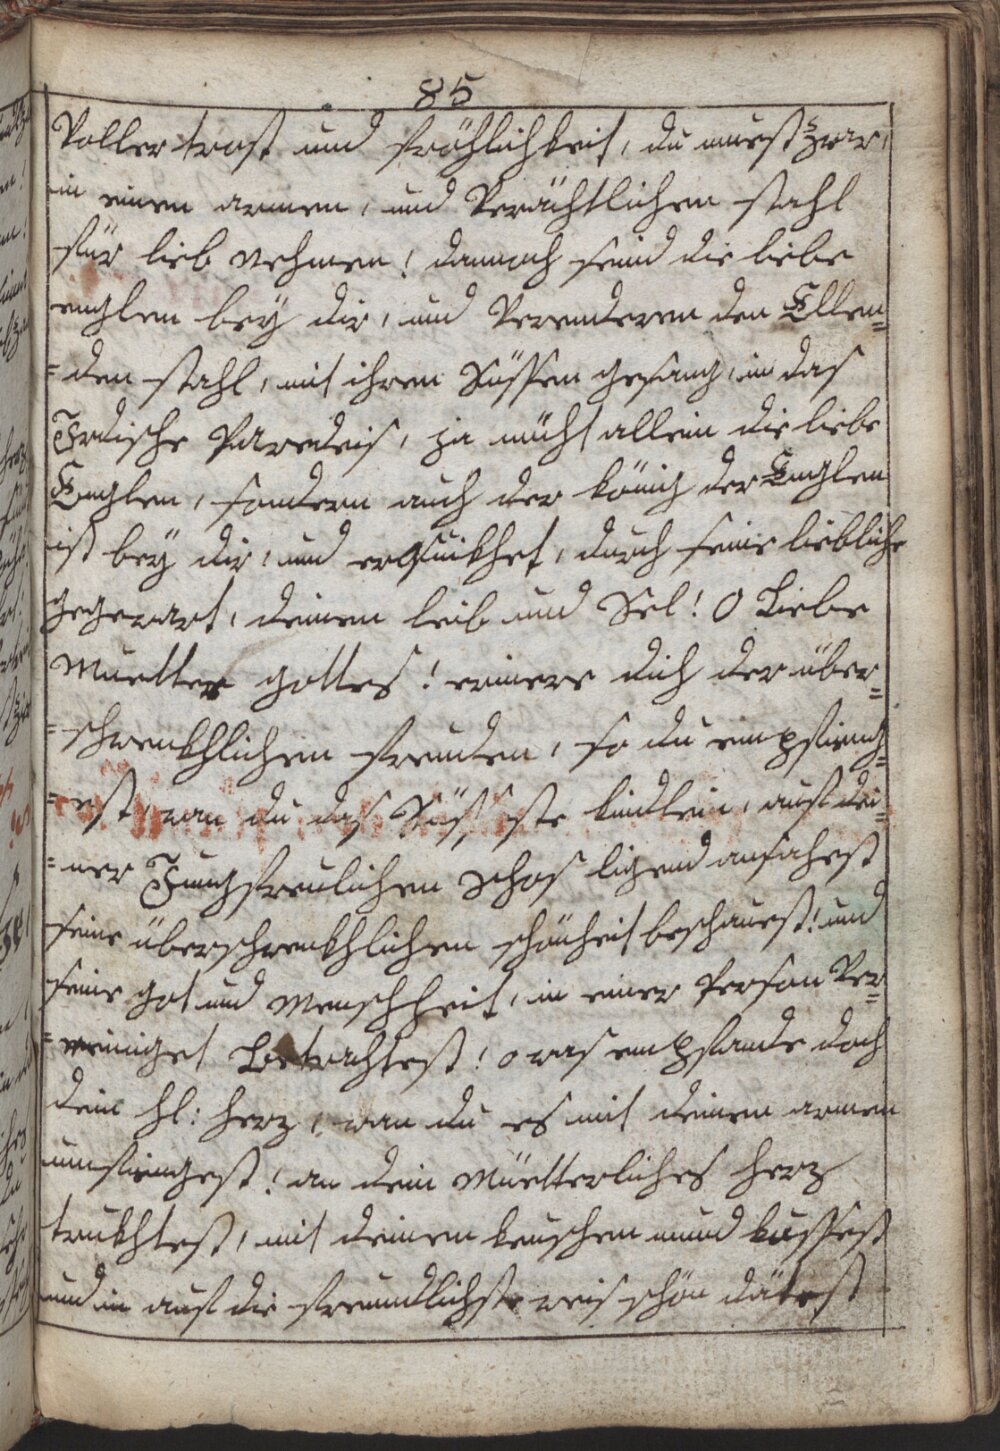 85
Voller trost und fröhlichkeit, du muest zwar,
in einen armen, und Verächtlichen stahl
für lieb nehmen! dannoch seind die liebe
englen bey dir, und Verenderen den Ellen=
=den stahl, mit ihren Süssen gesang, in das
Irdische Paredeis, ja nücht allein die liebe
Englen, sondern auch der könig der Englen
ist bey dir, und erquikhet, durch seine liebliche
gegewart, deinen leib und Sel! O Liebe
Muetter gottes! erinere dich der über=
=schwenkhlichen freuden, so du empfieng=
=est, wan du das Süsseste kindlein, auf dei=
=ner Jungfreulichen schos ligend ansahest
seine überschwenkhlichen schönheit beschauest! und
seine got und Menschheit, in einer Person Ver=
=einiget betrachtest! o was empfande doch
dein hl: herz, wan du es mit deinen armen
umfiengest! an dein Müetterliches herz
trukhtest, mit deinem keuschen mund kussest
und in auf die freundlichste weis schön dätest